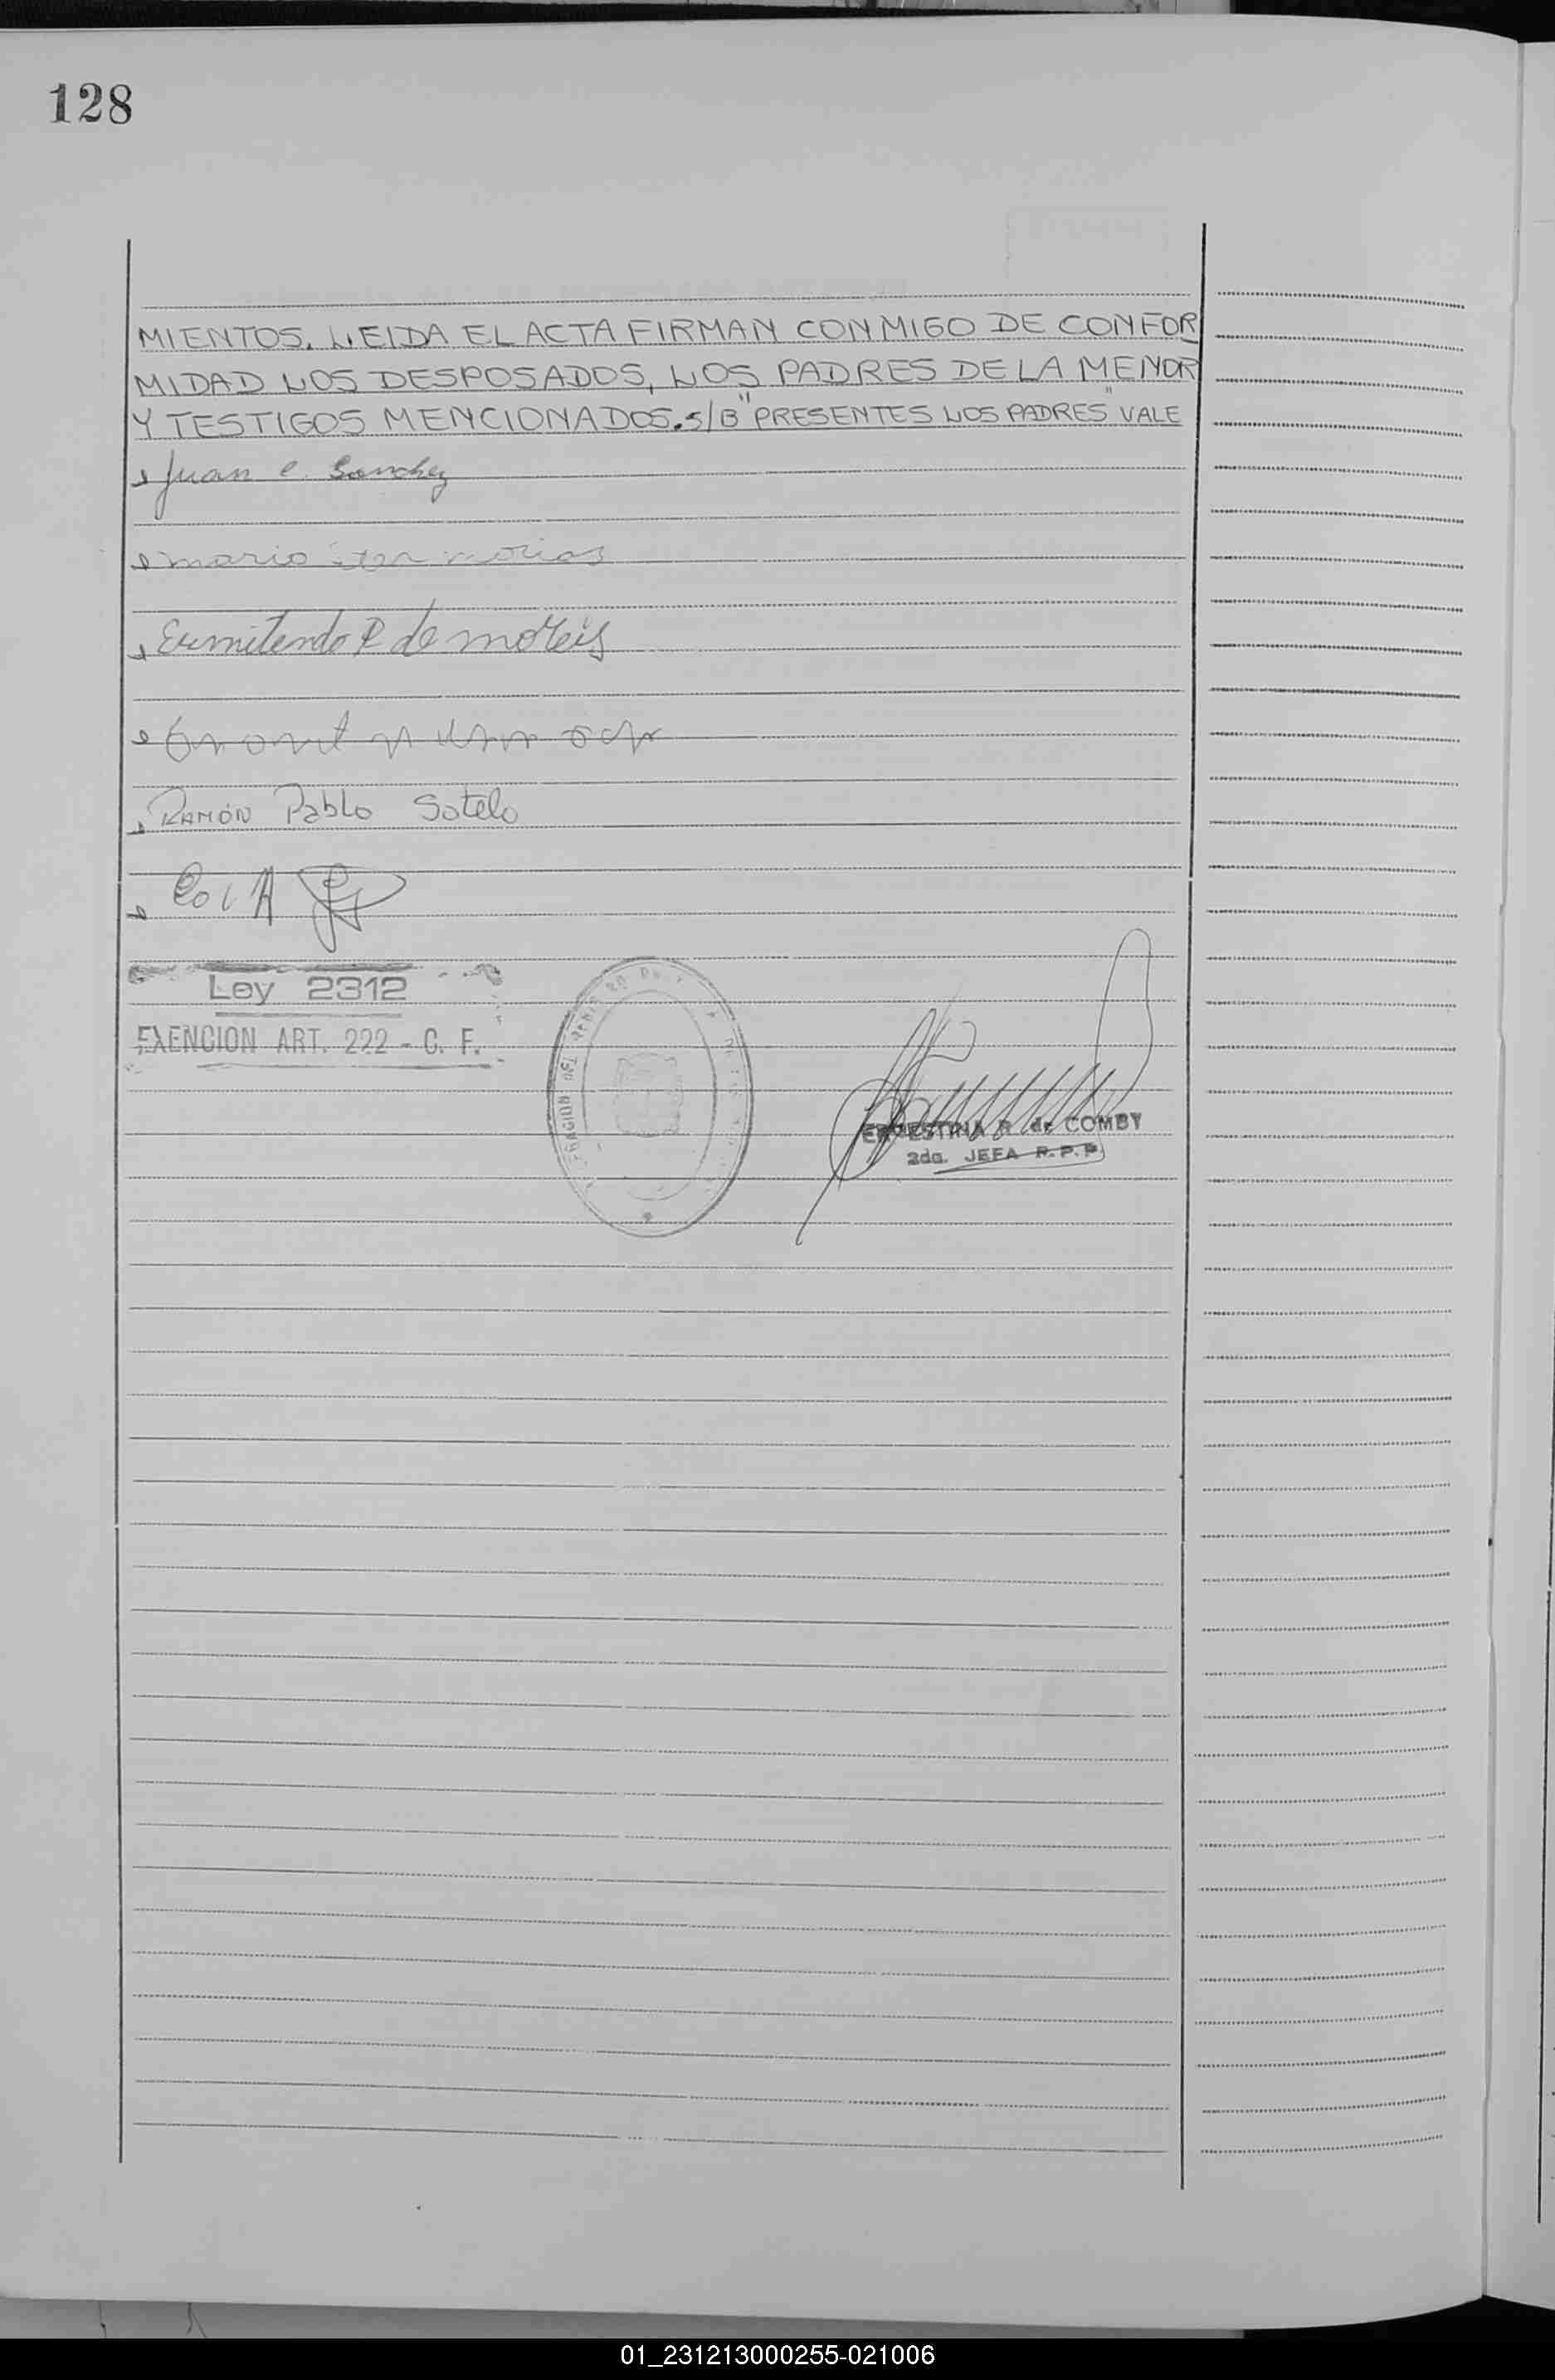 128
MIENTOS. LEIDA EL ACTA FIRMAN CONMIGO DE CONFOR
MIDAD LOS DESPOSADOS, LOS PADRES DE LA MENOR
Y TESTIGOS MENCIONADOS. S/B "PRESENTES LOS PADRES" VALE
Juan C. Sanchez
Maria
de
Ramón Pablo Sotelo
Ley 2312
EXENCION ART. 222 - C. F.
ERNESTINA R. de COMBY
2da. JEFA R.P.P.
01_231213000255-021006